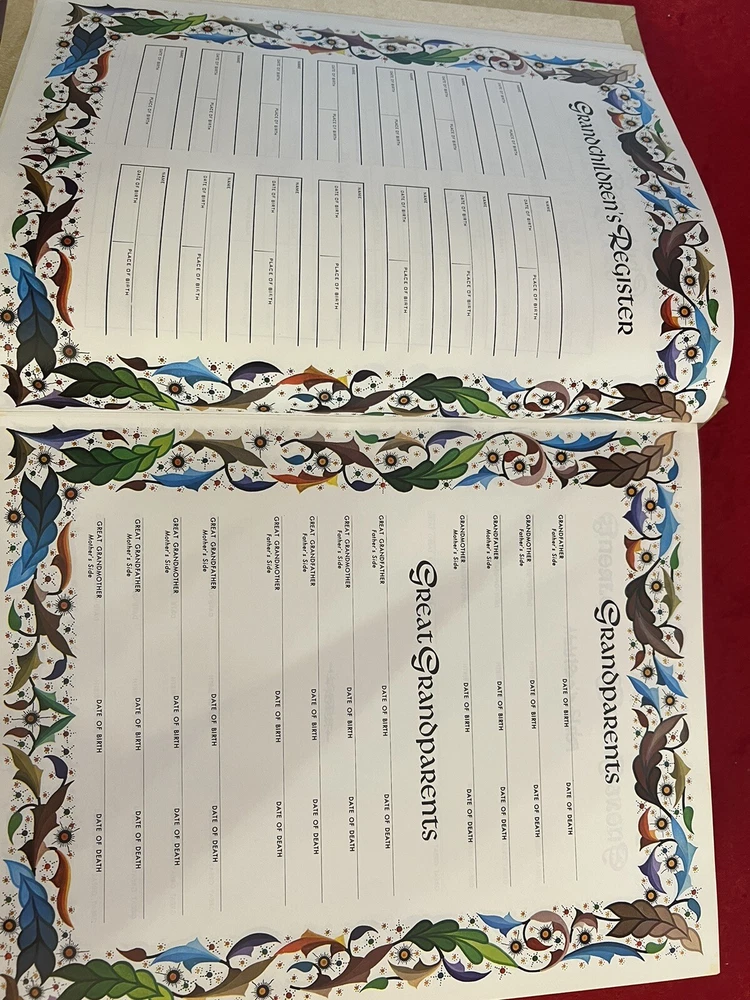 Grandchildren's Register
NAME NAME
DATE OF BIRTH PLACE OF BIRTH DATE OF BIRTH PLACE OF BIRTH
NAME NAME
DATE OF BIRTH PLACE OF BIRTH DATE OF BIRTH PLACE OF BIRTH
NAME NAME
DATE OF BIRTH PLACE OF BIRTH DATE OF BIRTH PLACE OF BIRTH
NAME NAME
DATE OF BIRTH PLACE OF BIRTH DATE OF BIRTH PLACE OF BIRTH
NAME NAME
DATE OF BIRTH PLACE OF BIRTH DATE OF BIRTH PLACE OF BIRTH
NAME NAME
DATE OF BIRTH PLACE OF BIRTH DATE OF BIRTH PLACE OF BIRTH
NAME NAME
DATE OF BIRTH PLACE OF BIRTH DATE OF BIRTH PLACE OF BIRTH
Grandparents
GRANDFATHER DATE OF BIRTH DATE OF DEATH
Father's Side
GRANDMOTHER DATE OF BIRTH DATE OF DEATH
Father's Side
GRANDFATHER DATE OF BIRTH DATE OF DEATH
Mother's Side
GRANDMOTHER DATE OF BIRTH DATE OF DEATH
Mother's Side
Great Grandparents
GREAT GRANDFATHER DATE OF BIRTH DATE OF DEATH
Father's Side
GREAT GRANDMOTHER DATE OF BIRTH DATE OF DEATH
Father's Side
GREAT GRANDFATHER DATE OF BIRTH DATE OF DEATH
Father's Side
GREAT GRANDMOTHER DATE OF BIRTH DATE OF DEATH
Father's Side
GREAT GRANDFATHER DATE OF BIRTH DATE OF DEATH
Mother's Side
GREAT GRANDMOTHER DATE OF BIRTH DATE OF DEATH
Mother's Side
GREAT GRANDFATHER DATE OF BIRTH DATE OF DEATH
Mother's Side
GREAT GRANDMOTHER DATE OF BIRTH DATE OF DEATH
Mother's Side